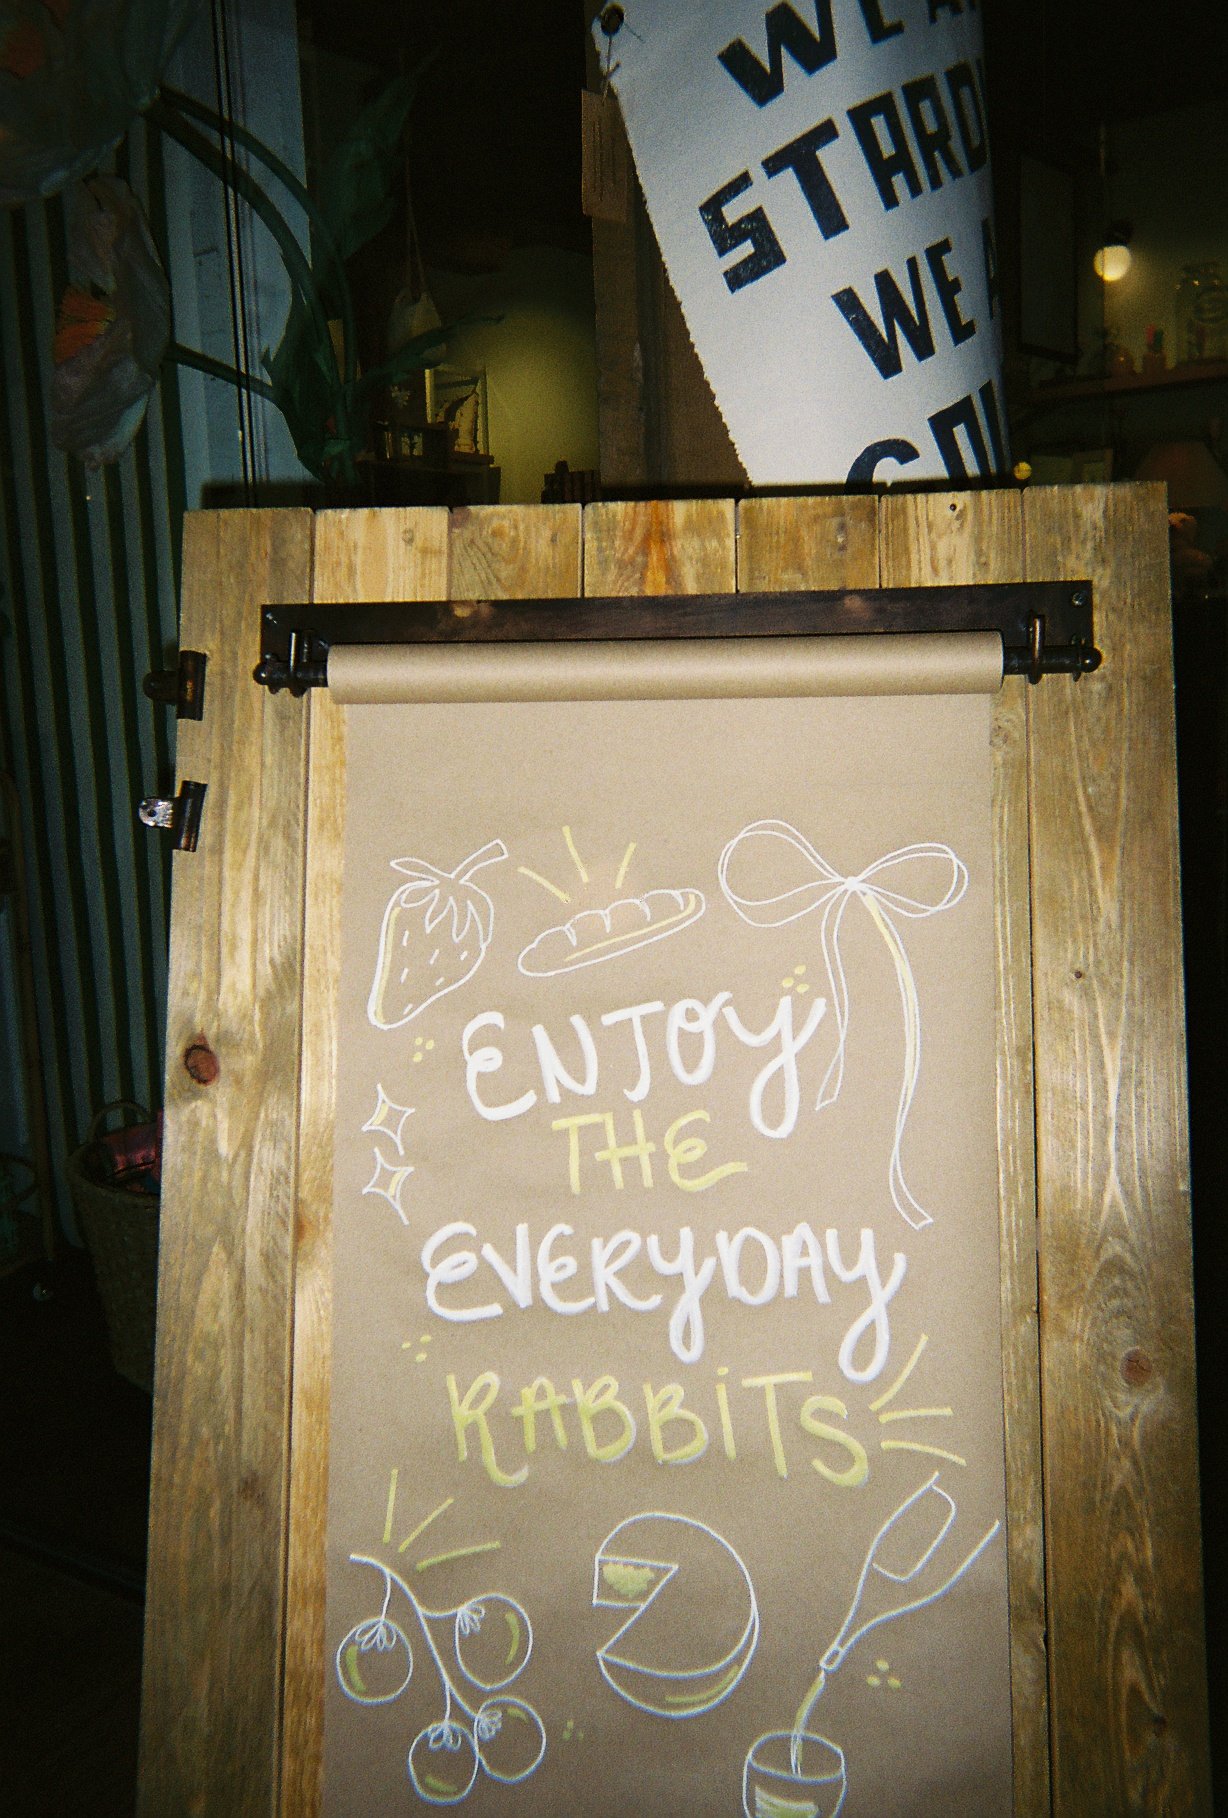 WE
STARD
WE
ENJOY
THE
EVERYDAY
RABBiTS